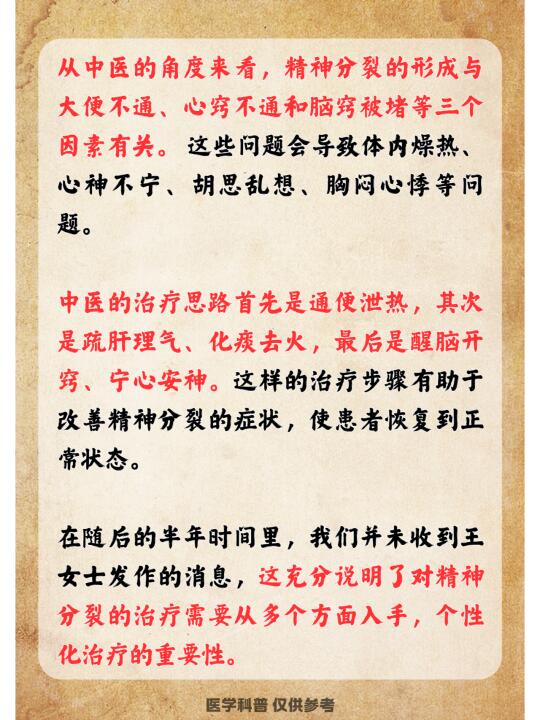 从中医的角度来看，精神分裂的形成与
大便不通、心窍不通和脑窍被堵等三个
因素有关。这些问题会导致体内燥热、
心神不宁、胡思乱想、胸闷心悸等问
题。
中医的治疗思路首先是通便泄热，其次
是疏肝理气、化痰去火，最后是醒脑开
窍、宁心安神。这样的治疗步骤有助于
改善精神分裂的症状，使患者恢复到正
常状态。
在随后的半年时间里，我们并未收到王
女士发作的消息，这充分说明了对精神
分裂的治疗需要从多个方面入手，个性
化治疗的重要性。
医学科普 仅供参考